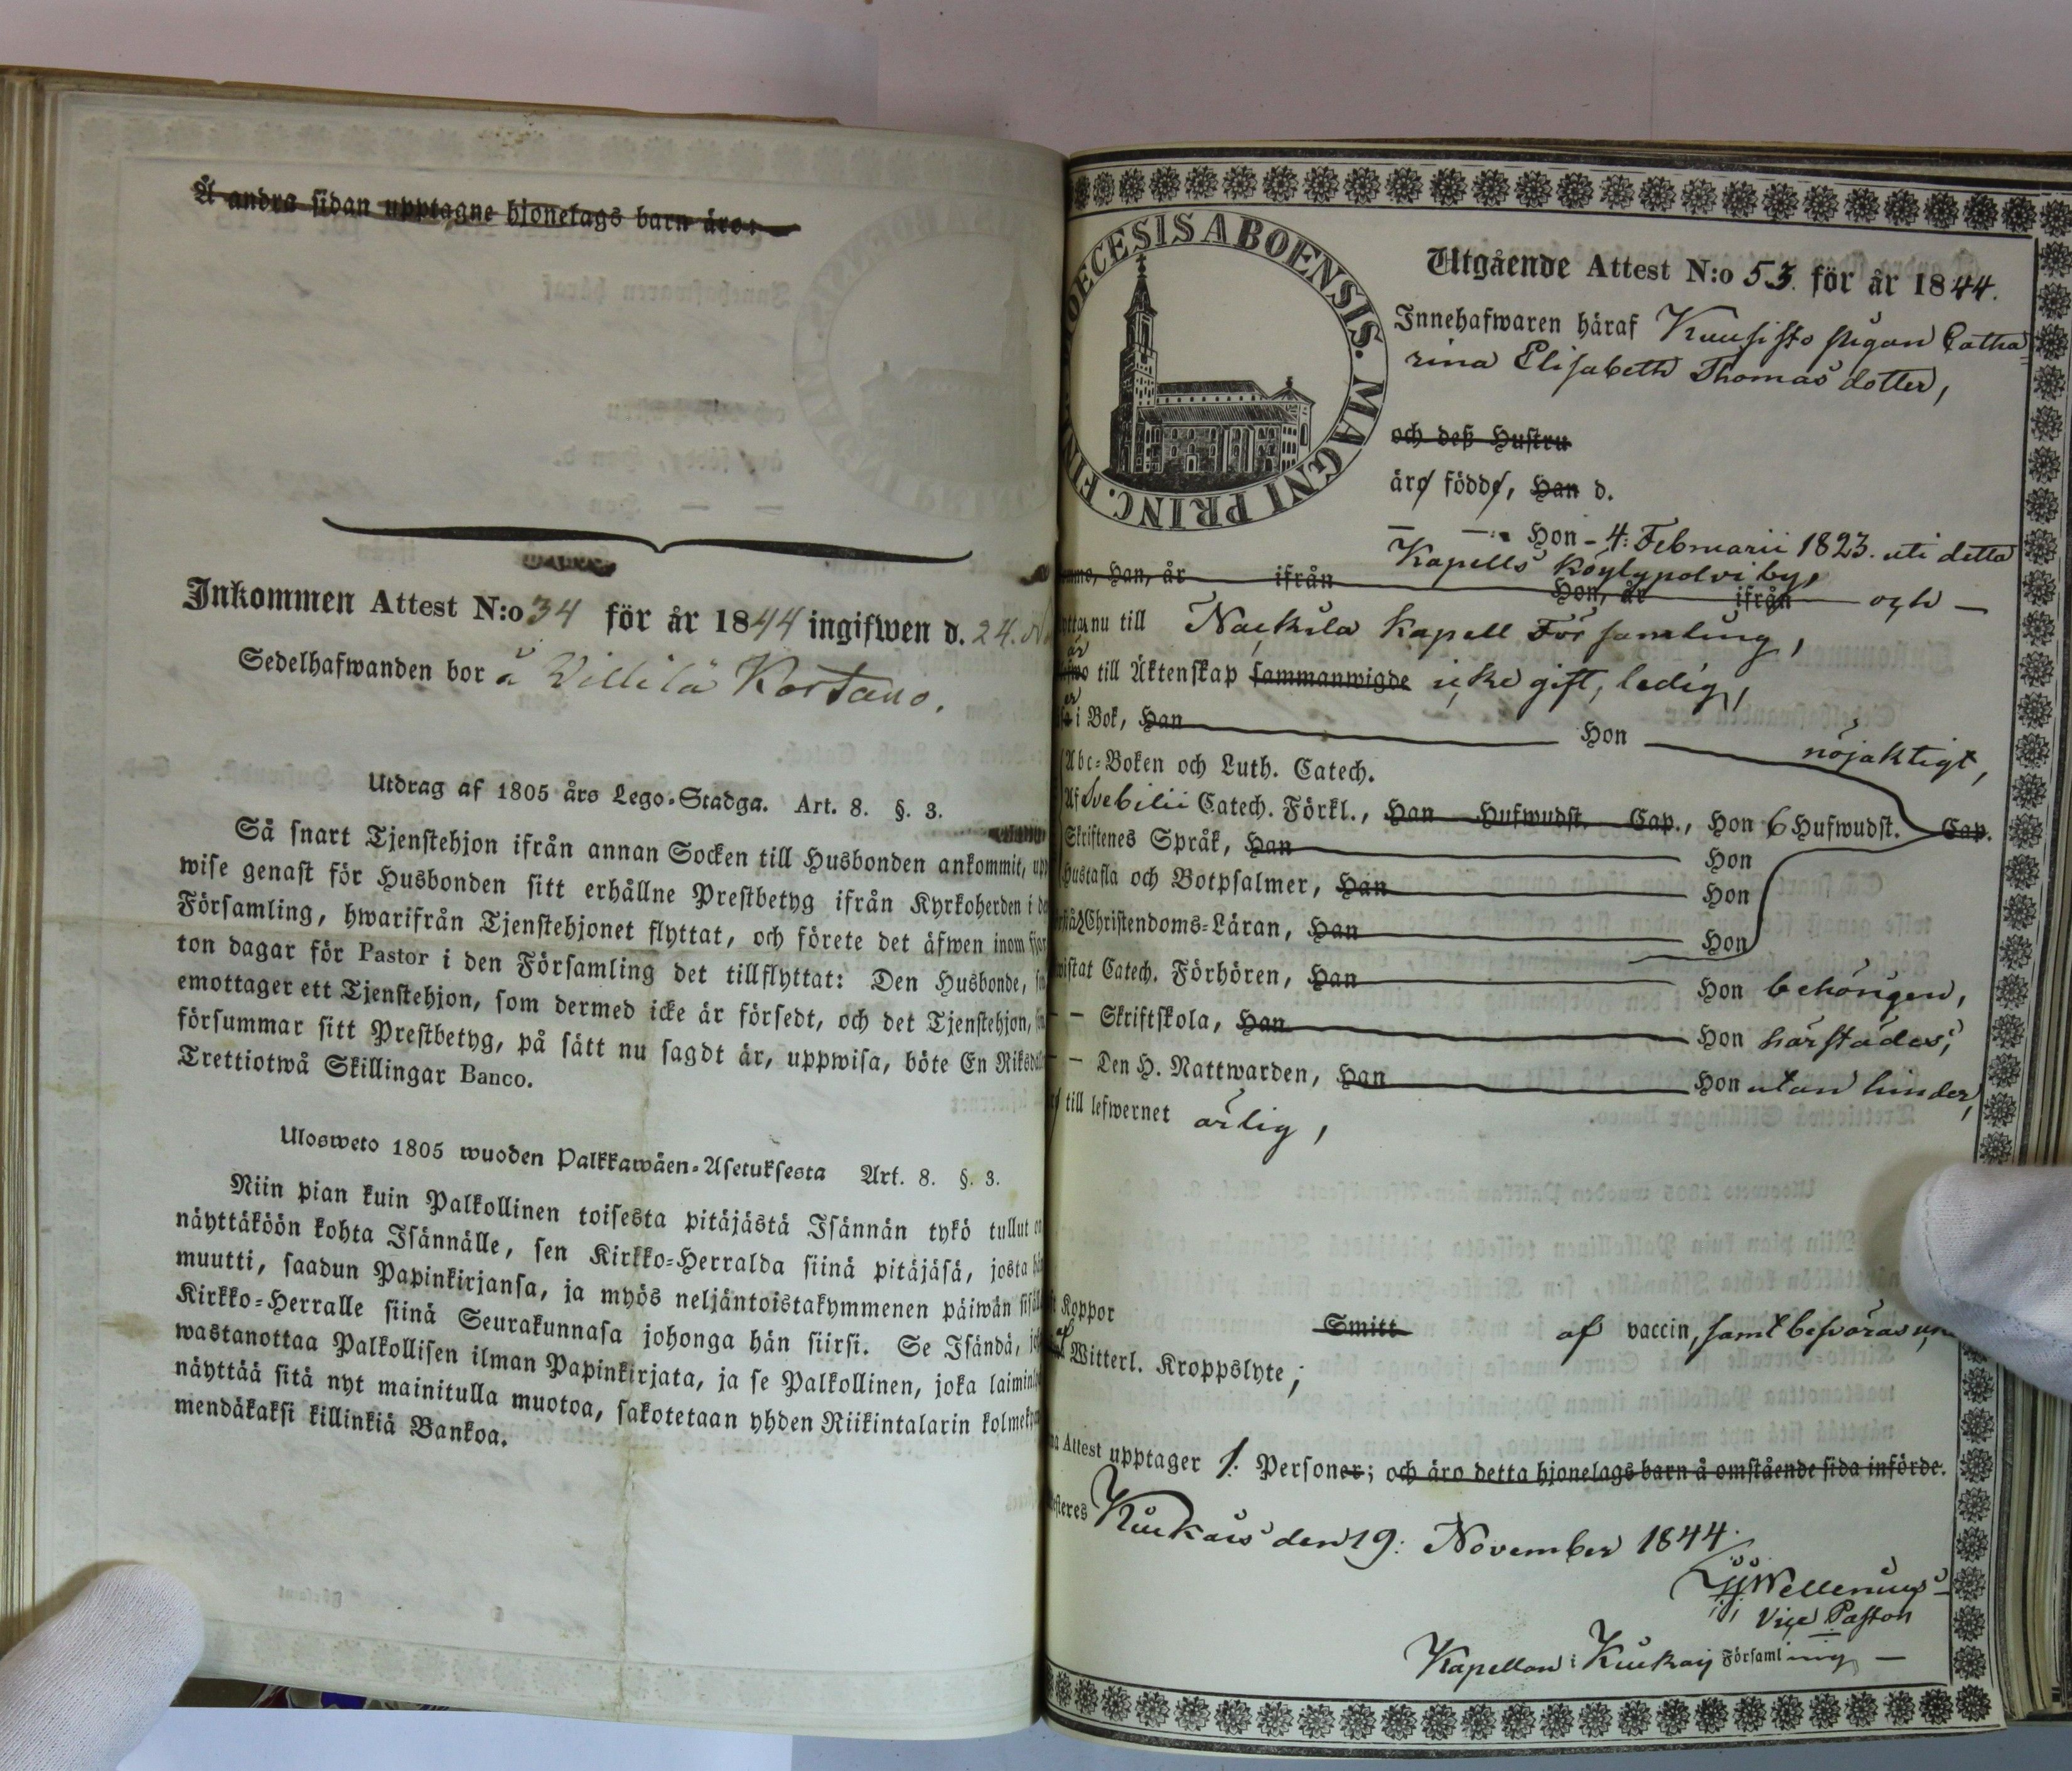 Å andra sidan upptagne hjonelags barn äro:
Inkommen Attest N:o 34 för år 1844 ingifwen d. 24.
Sedelhafwanden bor å Villilä Kortano.
Utdrag af 1805 års Lego-Stadga. Art. 8. §. 3.
Så snart Tjenstehjon ifrån annan Socken till Husbonden ankommit, upp
wise genast för Husbonden sitt erhållne Prestbetyg ifrån Kyrkoherden i de
Församling, hwarifrån Tjenstehjonet flyttat, och förete det äfwen inom fjor
ton dagar för Pastor i den Församling det tillflyttat: Den Husbonde,
emottager ett Tjenstehjon, som dermed icke är försedt, och det Tjenstehjon,
försummar sitt Prestbetyg, på sätt nu sagdt är, uppwisa, böte En Riksdal
Trettiotwå Skillingar Banco.
Ulosweto 1805 wuoden Palkkawäen-Asetuksesta Art. 8. §. 3.
Niin pian kuin Palkollinen toisesta pitäjästä Isännän tykö tullut on
näyttäköön kohta Isännälle, sen Kirkko-Herralda siinä pitäjäsä, josta hän
muutti, saadun Papinkirjansa, ja myös neljäntoistakymmenen päiwän sisäl
Kirkko-Herralle siinä Seurakunnasa johonga hän siirsi. Se Isändä, jo
wastanottaa Palkollisen ilman Papinkirjata, ja se Palkollinen, joka laiminly
näyttää sitä nyt mainitulla muotoa, sakotetaan yhden Riikintalarin kolmekym
mendäkaksi killinkiä Bankoa.
DIOECESIS ABOENSIS. MAGNI PRINC. FINL.
Utgående Attest N:o 53. för år 1844.
Innehafwaren häraf Kuusisto pigan Catha
rina Elisabeth Thomas dotter,
och deß Hustru
äro födde, Han d.
— — Hon - 4: Februarii 1823. uti detta
Kapells Köylypolvi by,
Han, år ifrån Hon, år ifrån och —
nu till Nackila Kapell Församling,
är
till Äktenskap sammanwigde icke gift, ledig,
i Bok, Han Hon nöjaktigt,
Abc-Boken och Luth. Catech.
Af Svebilii Catech. Förkl., Han Hufwudst. Cap., Hon 6 Hufwudst. Cap.
Skriftenes Språk, Han Hon
Hustafla och Botpsalmer, Han Hon
Christendoms-Läran, Han Hon
wistat Catech. Förhören, Han Hon behörigen,
— — Skriftskola, Han Hon härstädes;
— — Den H. Nattwarden, Han Hon utan hinder,
till lefwernet ärlig,
Koppor Smitt af vaccin, samt besväras
af Witterl. Kroppslyte;
Attest upptager 1. Personer; och äro detta hjonelags barn å omstående sida införde.
Kiukais den 19: November 1844.
Wellenius
Vice Pastor
Kapellan i Kiukais Församling —